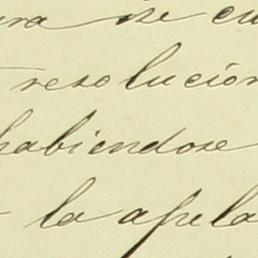 se
resolución
habiendose
la apela